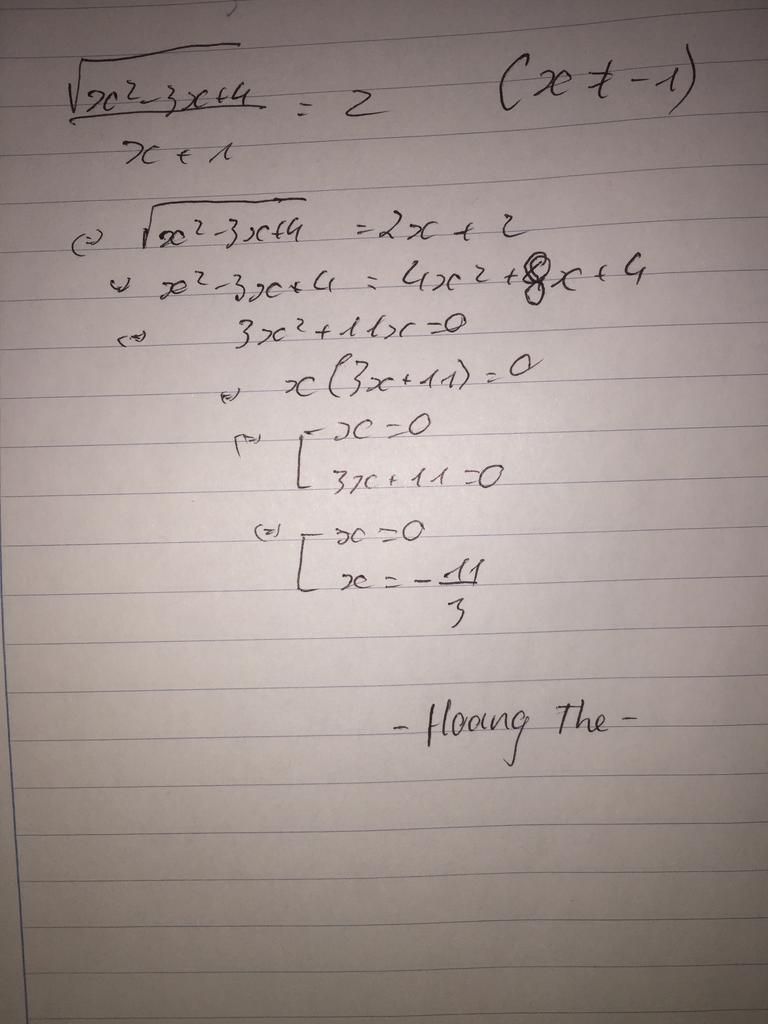 √(x²-3x+4) / (x+1) = 2 (x ≠ -1)
(=) √(x²-3x+4) = 2x + 2
(=) x²-3x+4 = 4x²+8x+4
(=) 3x²+11x=0
(=) x(3x+11)=0
(=) [ x=0
3x+11=0
(=) [ x=0
x = -11/3
- Hoang The -